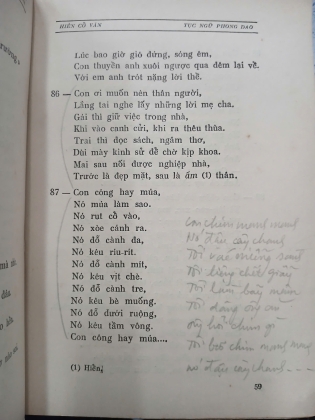 HIẾN CỔ VĂN
TỤC NGỮ PHONG DAO
Lúc bao giờ gió đứng, sóng êm,
Con thuyền anh xuôi ngược qua đêm lại về.
Với em anh trót nặng lời thề.
86 — Con ơi muốn nên thân người,
Lắng tai nghe lấy những lời mẹ cha.
Gái thì giữ việc trong nhà,
Khi vào canh cửi, khi ra thêu thùa.
Trai thì đọc sách, ngâm thơ,
Dùi mài kinh sử để chờ kịp khoa.
Mai sau nối được nghiệp nhà,
Trước là đẹp mặt, sau là ấm (1) thân.
87 — Con công hay múa,
Nó múa làm sao.
Nó rụt cổ vào,
Nó xòe cánh ra.
Nó đỗ cành đa,
Nó kêu ríu-rít.
Nó đỗ cành mít,
Nó kêu vịt chè.
Nó đỗ cành tre,
Nó kêu bè muống.
Nó đỗ dưới ruộng,
Nó kêu tầm vông.
Con công hay múa...,
con chim manh manh
Nó đậu cây chanh
Tôi vác miểng sành
Tôi liệng chết giãy
Tôi làm bảy mâm
Tôi dâng ông ăn
ông hỏi chim gì
Tôi bỏ chim manh manh
nó đậu cây chanh - - -
(1) Hiền,
59